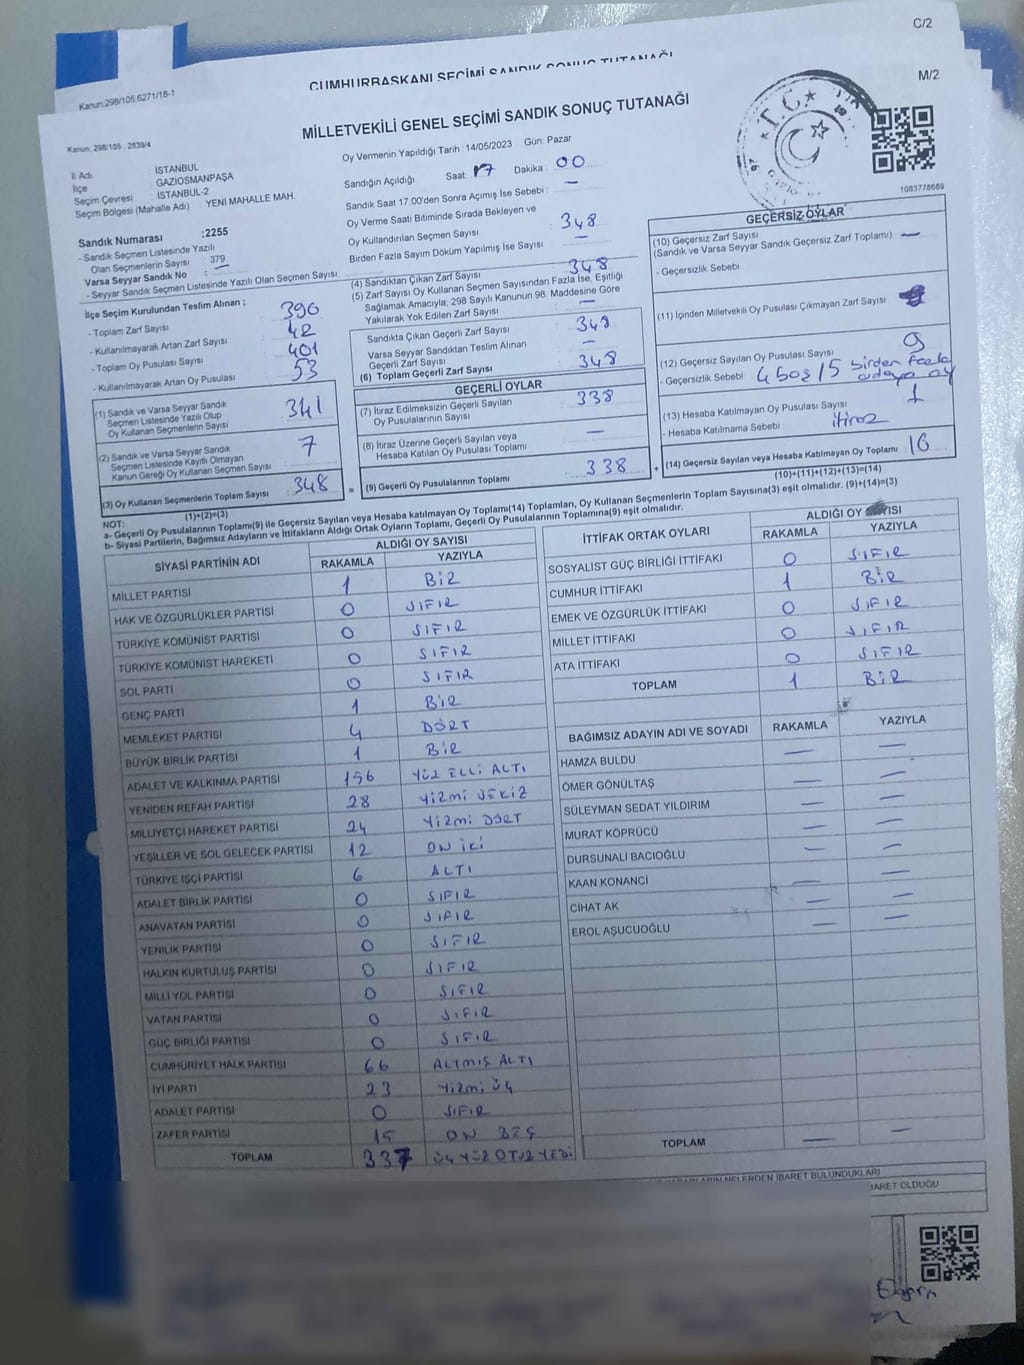 C/2
CUMHURBAŞKANI SEÇİMİ SANDIK SONUÇ TUTANAĞI
Kanun:298/105,6271/18-1
M/2
MİLLETVEKİLİ GENEL SEÇİMİ SANDIK SONUÇ TUTANAĞI
Kanun: 298/105 , 2839/4
T.C.
1083778689
İl Adı İSTANBUL
İlçe GAZİOSMANPAŞA
Seçim Çevresi : İSTANBUL-2
Seçim Bölgesi (Mahalle Adı) : YENİ MAHALLE MAH.
Sandık Numarası :2255
- Sandık Seçmen Listesinde Yazılı
Olan Seçmenlerin Sayısı : 379
Varsa Seyyar Sandık No : —
- Seyyar Sandık Seçmen Listesinde Yazılı Olan Seçmen Sayısı:
İlçe Seçim Kurulundan Teslim Alınan ;
- Toplam Zarf Sayısı : 390
- Kullanılmayarak Artan Zarf Sayısı : 42
- Toplam Oy Pusulası Sayısı : 401
- Kullanılmayarak Artan Oy Pusulası : 53
(1) Sandık ve Varsa Seyyar Sandık
Seçmen Listesinde Yazılı Olup
Oy Kullanan Seçmenlerin Sayısı : 341
(2) Sandık ve Varsa Seyyar Sandık
Seçmen Listesinde Kayıtlı Olmayan
Kanun Gereği Oy Kullanan Seçmen Sayısı : 7
(3) Oy Kullanan Seçmenlerin Toplam Sayısı : 348
(1)+(2)=(3)
Oy Vermenin Yapıldığı Tarih :14/05/2023 Gün: Pazar
Sandığın Açıldığı Saat : 17 Dakika : 00
Sandık Saat 17.00'den Sonra Açılmış İse Sebebi : —
Oy Verme Saati Bitiminde Sırada Bekleyen ve
Oy Kullandırılan Seçmen Sayısı : 348
Birden Fazla Sayım Döküm Yapılmış İse Sayısı : —
(4) Sandıktan Çıkan Zarf Sayısı : 348
(5) Zarf Sayısı Oy Kullanan Seçmen Sayısından Fazla İse, Eşitliği
Sağlamak Amacıyla, 298 Sayılı Kanunun 98. Maddesine Göre
Yakılarak Yok Edilen Zarf Sayısı : —
Sandıkta Çıkan Geçerli Zarf Sayısı : 348
Varsa Seyyar Sandıktan Teslim Alınan
Geçerli Zarf Sayısı : —
(6) Toplam Geçerli Zarf Sayısı : 348
GEÇERLİ OYLAR
(7) İtiraz Edilmeksizin Geçerli Sayılan
Oy Pusulalarının Sayısı : 338
(8) İtiraz Üzerine Geçerli Sayılan veya
Hesaba Katılan Oy Pusulası Toplamı : —
= (9) Geçerli Oy Pusulalarının Toplamı : 338 +
GEÇERSİZ OYLAR
(10) Geçersiz Zarf Sayısı : —
(Sandık ve Varsa Seyyar Sandık Geçersiz Zarf Toplamı)
- Geçersizlik Sebebi
(11) İçinden Milletvekili Oy Pusulası Çıkmayan Zarf Sayısı
(12) Geçersiz Sayılan Oy Pusulası Sayısı : 9
- Geçersizlik Sebebi : 4 boş / 5 birden fazla
adaya oy
(13) Hesaba Katılmayan Oy Pusulası Sayısı : 1
- Hesaba Katılmama Sebebi : itiraz
(14) Geçersiz Sayılan veya Hesaba Katılmayan Oy Toplamı : 10
(10)+(11)+(12)+(13)=(14)
NOT:
a- Geçerli Oy Pusulalarının Toplamı(9) ile Geçersiz Sayılan veya Hesaba katılmayan Oy Toplamı(14) Toplamları, Oy Kullanan Seçmenlerin Toplam Sayısına(3) eşit olmalıdır. (9)+(14)=(3)
b- Siyasi Partilerin, Bağımsız Adayların ve İttifakların Aldığı Ortak Oyların Toplamı, Geçerli Oy Pusulalarının Toplamına(9) eşit olmalıdır.
SİYASİ PARTİNİN ADI ALDIĞI OY SAYISI
RAKAMLA YAZIYLA
MİLLET PARTİSİ 1 BİR
HAK VE ÖZGÜRLÜKLER PARTİSİ 0 SIFIR
TÜRKİYE KOMÜNİST PARTİSİ 0 SIFIR
TÜRKİYE KOMÜNİST HAREKETİ 0 SIFIR
SOL PARTİ 0 SIFIR
GENÇ PARTİ 1 BİR
MEMLEKET PARTİSİ 4 DÖRT
BÜYÜK BİRLİK PARTİSİ 1 BİR
ADALET VE KALKINMA PARTİSİ 156 YÜZ ELLİ ALTI
YENİDEN REFAH PARTİSİ 28 YİRMİ SEKİZ
MİLLİYETÇİ HAREKET PARTİSİ 24 YİRMİ DÖRT
YEŞİLLER VE SOL GELECEK PARTİSİ 12 ON İKİ
TÜRKİYE İŞÇİ PARTİSİ 6 ALTI
ADALET BİRLİK PARTİSİ 0 SIFIR
ANAVATAN PARTİSİ 0 SIFIR
YENİLİK PARTİSİ 0 SIFIR
HALKIN KURTULUŞ PARTİSİ 0 SIFIR
MİLLİ YOL PARTİSİ 0 SIFIR
VATAN PARTİSİ 0 SIFIR
GÜÇ BİRLİĞİ PARTİSİ 0 SIFIR
CUMHURİYET HALK PARTİSİ 66 ALTMIŞ ALTI
İYİ PARTİ 23 YİRMİ ÜÇ
ADALET PARTİSİ 0 SIFIR
ZAFER PARTİSİ 15 ON BEŞ
TOPLAM 337 ÜÇ YÜZ OTUZ YEDİ
İTTİFAK ORTAK OYLARI ALDIĞI OY SAYISI
RAKAMLA YAZIYLA
SOSYALİST GÜÇ BİRLİĞİ İTTİFAKI 0 SIFIR
CUMHUR İTTİFAKI 1 BİR
EMEK VE ÖZGÜRLÜK İTTİFAKI 0 SIFIR
MİLLET İTTİFAKI 0 SIFIR
ATA İTTİFAKI 0 SIFIR
TOPLAM 1 BİR
BAĞIMSIZ ADAYIN ADI VE SOYADI RAKAMLA YAZIYLA
HAMZA BULDU — —
ÖMER GÖNÜLTAŞ — —
SÜLEYMAN SEDAT YILDIRIM — —
MURAT KÖPRÜCÜ — —
DURSUNALİ BACIOĞLU — —
KAAN KONANCİ — —
CİHAT AK — —
EROL AŞUCUOĞLU — —
TOPLAM — —
NELERDEN İBARET BULUNDUKLARI
İBARET OLDUĞU